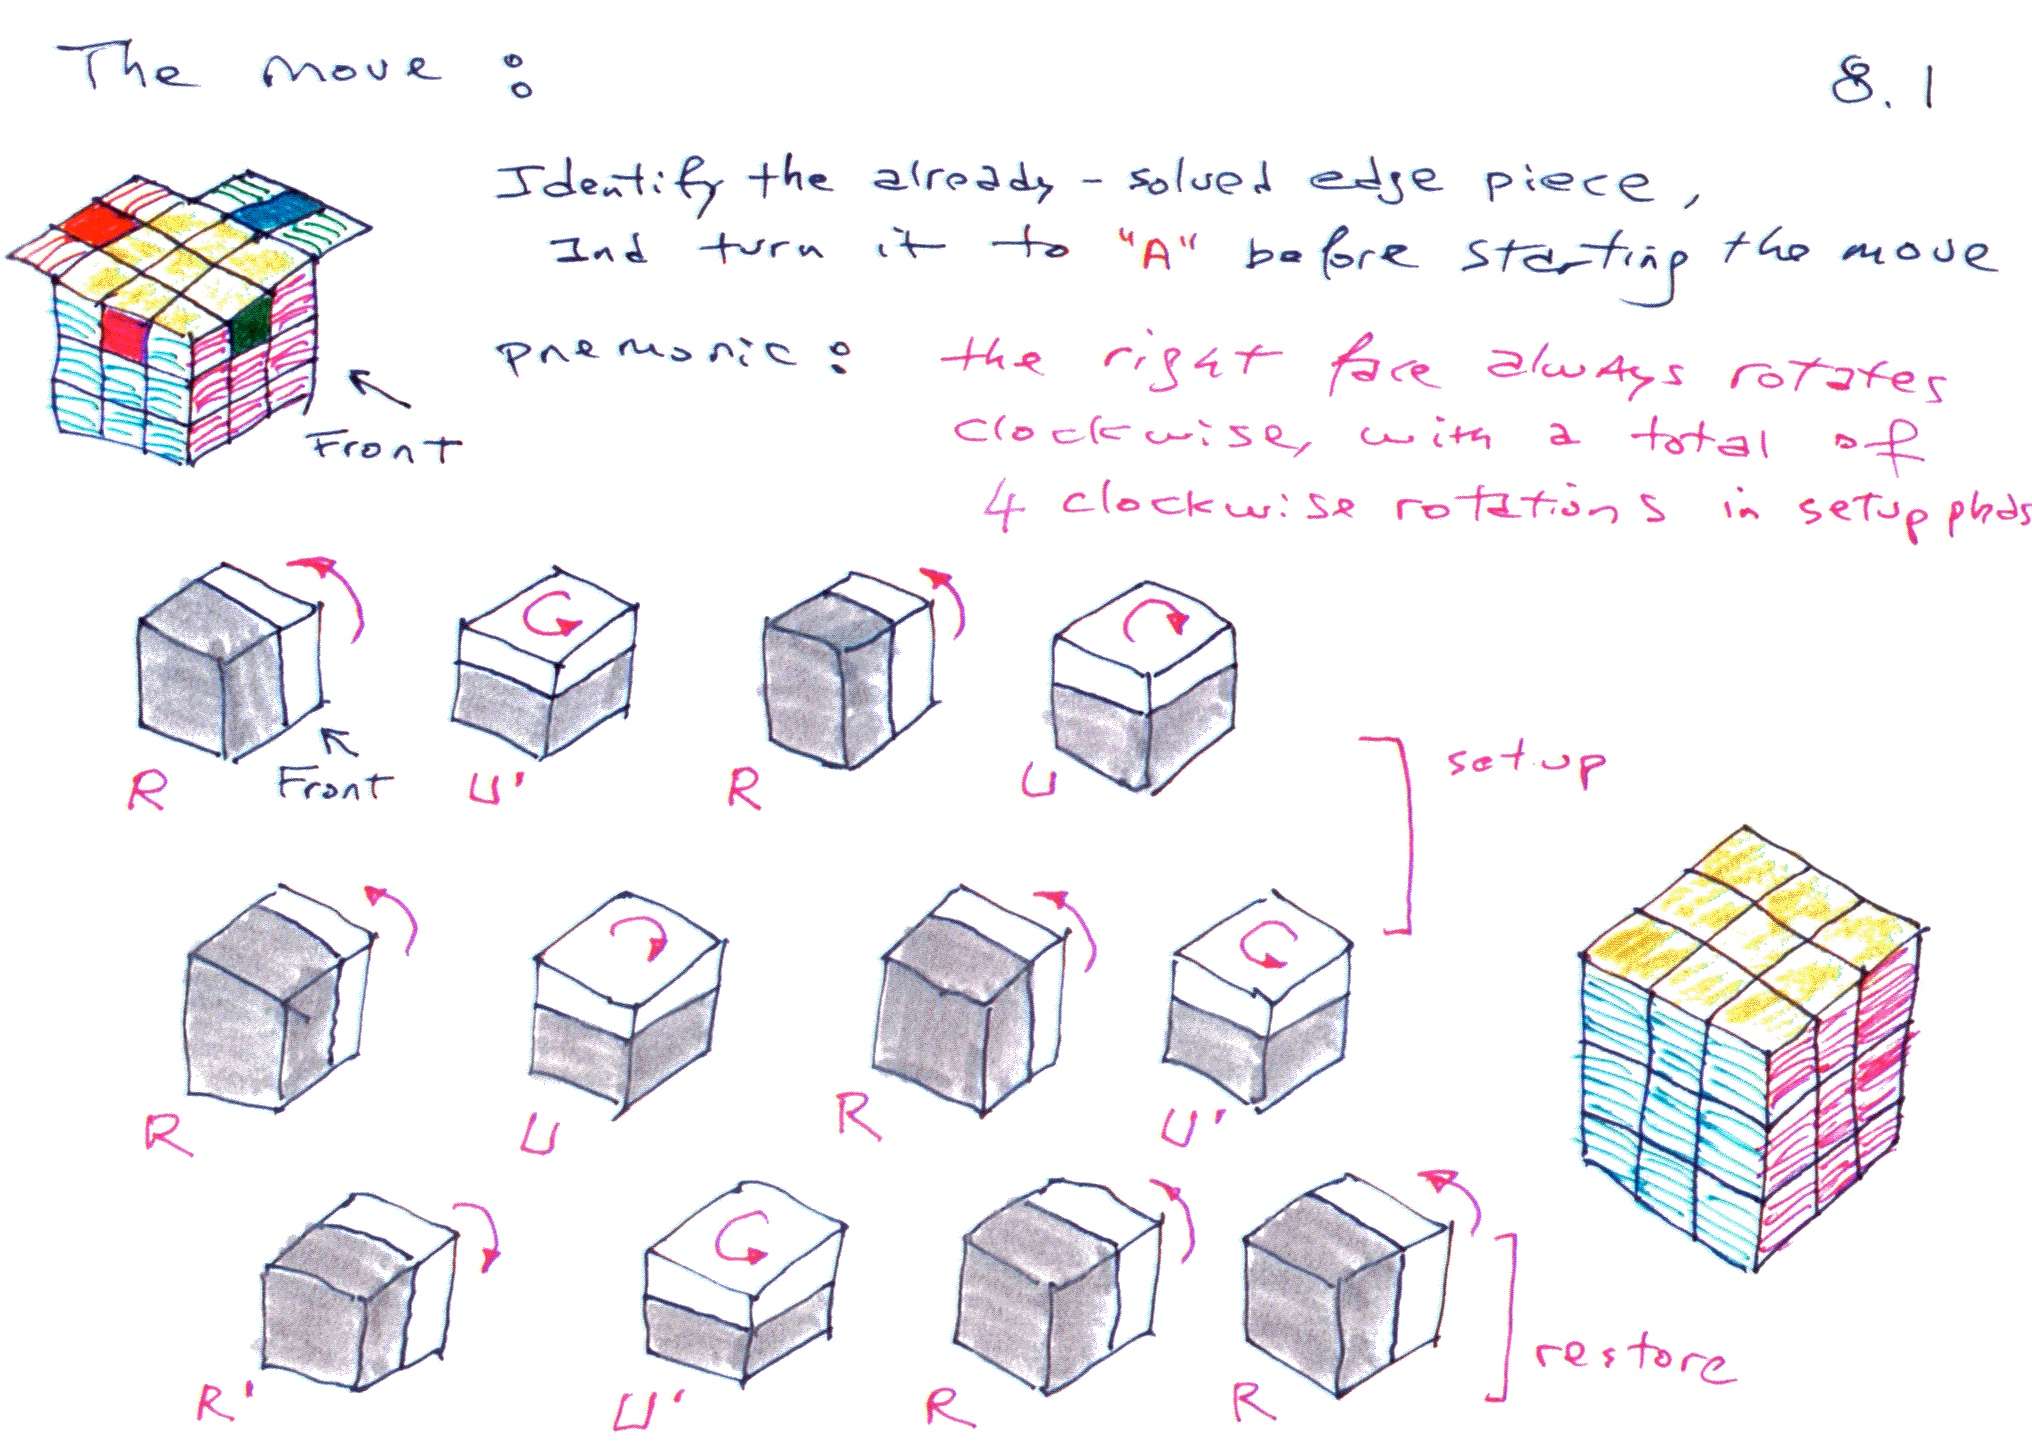 The move :
8.1
Identify the already-solved edge piece,
Ind turn it to "A" before starting the move
pnemonic : the right face always rotates
clockwise, with a total of
4 clockwise rotations in setup phas
Front
R
Front
U'
R
U
setup
R
U
R
U'
R'
U'
R
R
restore